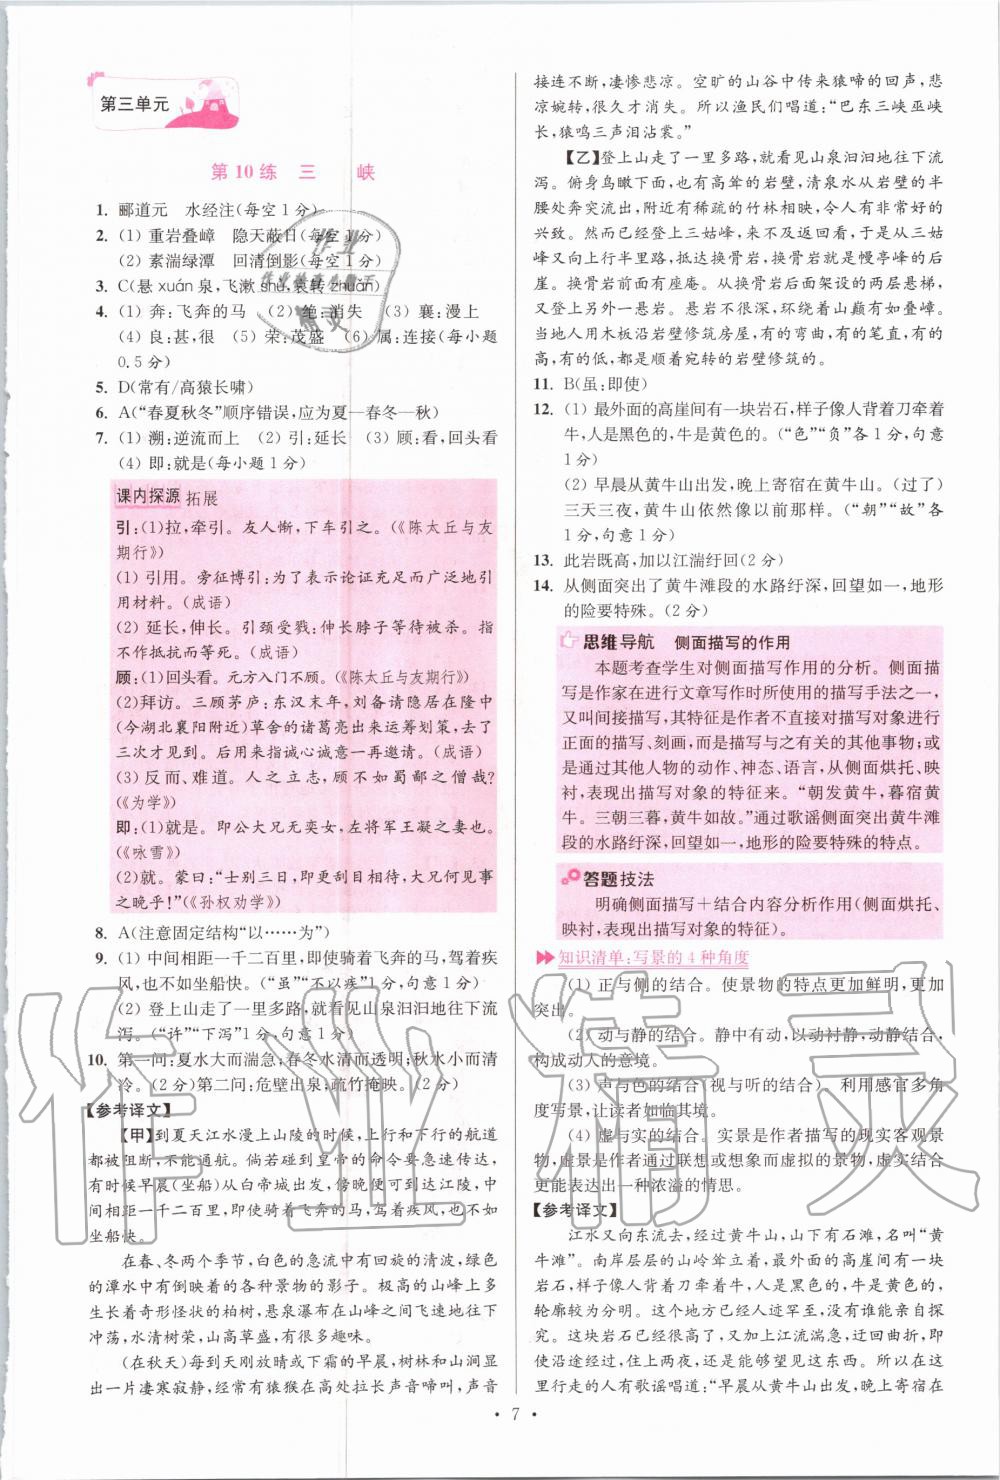 第三单元
第10练 三 峡
1. 郦道元 水经注(每空1分)
2. (1) 重岩叠嶂 隐天蔽日(每空1分)
(2) 素湍绿潭 回清倒影(每空1分)
3. C(悬xuán泉,飞漱shù,哀转zhuǎn)
4. (1) 奔:飞奔的马 (2) 绝:消失 (3) 襄:漫上
(4) 良:甚,很 (5) 荣:茂盛 (6) 属:连接(每小题
0.5分)
5. D(常有/高猿长啸)
6. A(“春夏秋冬”顺序错误,应为夏—春冬—秋)
7. (1) 溯:逆流而上 (2) 引:延长 (3) 顾:看,回头看
(4) 即:就是(每小题1分)
课内探源 拓展
引:(1)拉,牵引。友人惭,下车引之。(《陈太丘与友
期行》)
(1) 引用。旁征博引:为了表示论证充足而广泛地引
用材料。(成语)
(2) 延长,伸长。引颈受戮:伸长脖子等待被杀。指
不作抵抗而等死。(成语)
顾:(1)回头看。元方入门不顾。(《陈太丘与友期行》)
(2)拜访。三顾茅庐:东汉末年,刘备请隐居在隆中
(今湖北襄阳附近)草舍的诸葛亮出来运筹划策,去了
三次才见到。后用来指诚心诚意一再邀请。(成语)
(3)反而、难道。人之立志,顾不如蜀鄙之僧哉?
(《为学》)
即:(1)就是。即公大兄无奕女,左将军王凝之妻也。
(《咏雪》)
(2)就。蒙曰:“士别三日,即更刮目相待,大兄何见事
之晚乎!”(《孙权劝学》)
8. A(注意固定结构“以……为”)
9. (1) 中间相距一千二百里,即使骑着飞奔的马,驾着疾
风,也不如坐船快。(“虽”“不以疾”各1分,句意1分)
(2) 登上山走了一里多路,就看见山泉汩汩地往下流
泻。(“许”“下泻”1分,句意1分)
10. 第一问:夏水大而湍急;春冬水清而透明;秋水小而清
冷。(2分)第二问:危壁出泉;疏竹掩映。(2分)
【参考译文】
【甲】到夏天江水漫上山陵的时候,上行和下行的航道
都被阻断,不能通航。倘若碰到皇帝的命令要急速传达,
有时候早晨(坐船)从白帝城出发,傍晚便可到达江陵,中
间相距一千二百里,即使骑着飞奔的马,驾着疾风,也不如
坐船快。
在春、冬两个季节,白色的急流中有回旋的清波,绿色
的潭水中有倒映着的各种景物的影子。极高的山峰上多
生长着奇形怪状的柏树,悬泉瀑布在山峰之间飞速往下
冲荡,水清树荣,山高草盛,有很多趣味。
(在秋天)每到天刚放晴或下霜的早晨,树林和山涧显
出一片凄寒寂静,经常有猿猴在高处拉长声音啼叫,声音
接连不断,凄惨悲凉。空旷的山谷中传来猿啼的回声,悲
凉婉转,很久才消失。所以渔民们唱道:“巴东三峡巫峡
长,猿鸣三声泪沾裳。”
【乙】登上山走了一里多路,就看见山泉汩汩地往下流
泻。俯身鸟瞰下面,有高耸的岩壁,清泉水从岩壁的半
腰处奔突流出,附近有稀疏的竹林相映,令人有非常好的
兴致。然而已经登上三姑峰,来不及返回看,于是从三姑
峰又向上行三里路,抵达换骨岩,换骨岩就是慢亭峰的后
岩。换骨岩前面有座庵。从换骨岩后面架设的两层悬梯,
又登上另外一悬岩。悬岩不很深,环绕着山巅有如叠嶂。
当地人用木板沿岩壁修筑房屋,有的弯曲,有的笔直,有的
高,有的低,都是顺着宛转的岩壁修筑的。
11. B(虽:即使)
12. (1) 最外面的高崖间有一块岩石,样子像人背着刀牵着
牛,人是黑色的,牛是黄色的。(“色”“负”各1分,句意
1分)
(2) 早晨从黄牛山出发,晚上寄宿在黄牛山。(过了)
三天三夜,黄牛山依然像以前那样。(“朝”“故”各
1分,句意1分)
13. 此岩既高,加以江湍纡回(2分)
14. 从侧面突出了黄牛滩段的水路纡深,回望如一,地形
的险要特殊。(2分)
思维导航 侧面描写的作用
本题考查学生对侧面描写作用的分析。侧面描
写是作家在进行文章写作时所使用的描写手法之一,
又叫间接描写,其特征是作者不直接对描写对象进行
正面的描写、刻画,而是描写与之有关的其他事物;或
是通过其他人物的动作、神态、语言,从侧面烘托、映
衬,表现出描写对象的特征来。“朝发黄牛,暮宿黄
牛。三朝三暮,黄牛如故。”通过歌谣侧面突出黄牛滩
段的水路纡深,回望如一,地形的险要特殊的特点。
答题技法
明确侧面描写+结合内容分析作用(侧面烘托、
映衬,表现出描写对象的特征)。
知识清单:写景的4种角度
(1) 正与侧的结合。使景物的特点更加鲜明,更加
突出。
(2) 动与静的结合。静中有动,以动衬静,动静结合,
构成动人的意境。
(3) 声与色的结合(视与听的结合)。利用感官多角
度写景,让读者如临其境。
(4) 虚与实的结合。实景是作者描写的现实客观景
物,虚景是作者通过联想或想象而虚拟的景物,虚实结合
更能表达出一种浓溢的情思。
【参考译文】
江水又向东流去,经过黄牛山,山下有石滩,名叫“黄
牛滩”。南岸层层的山岭耸立着,最外面的高崖间有一块
岩石,样子像人背着刀牵着牛,人是黑色的,牛是黄色的,
轮廓较为分明。这个地方已经人迹罕至,没有能亲自探
究。这块岩石已经很高,又加上江流湍急,迂回曲折,即
使沿途经过,住宿两夜,还能够望见这东西。所以在这
里行走的人有歌谣唱道:“早晨从黄牛山出发,晚上寄宿在
• 7 •
作业精灵